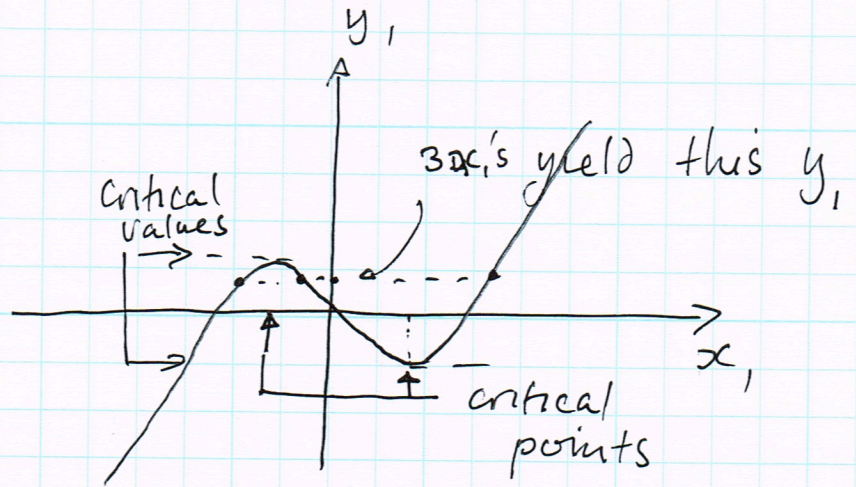 y₁
3 x₁'s yield this y₁
critical
values
x₁
critical
points